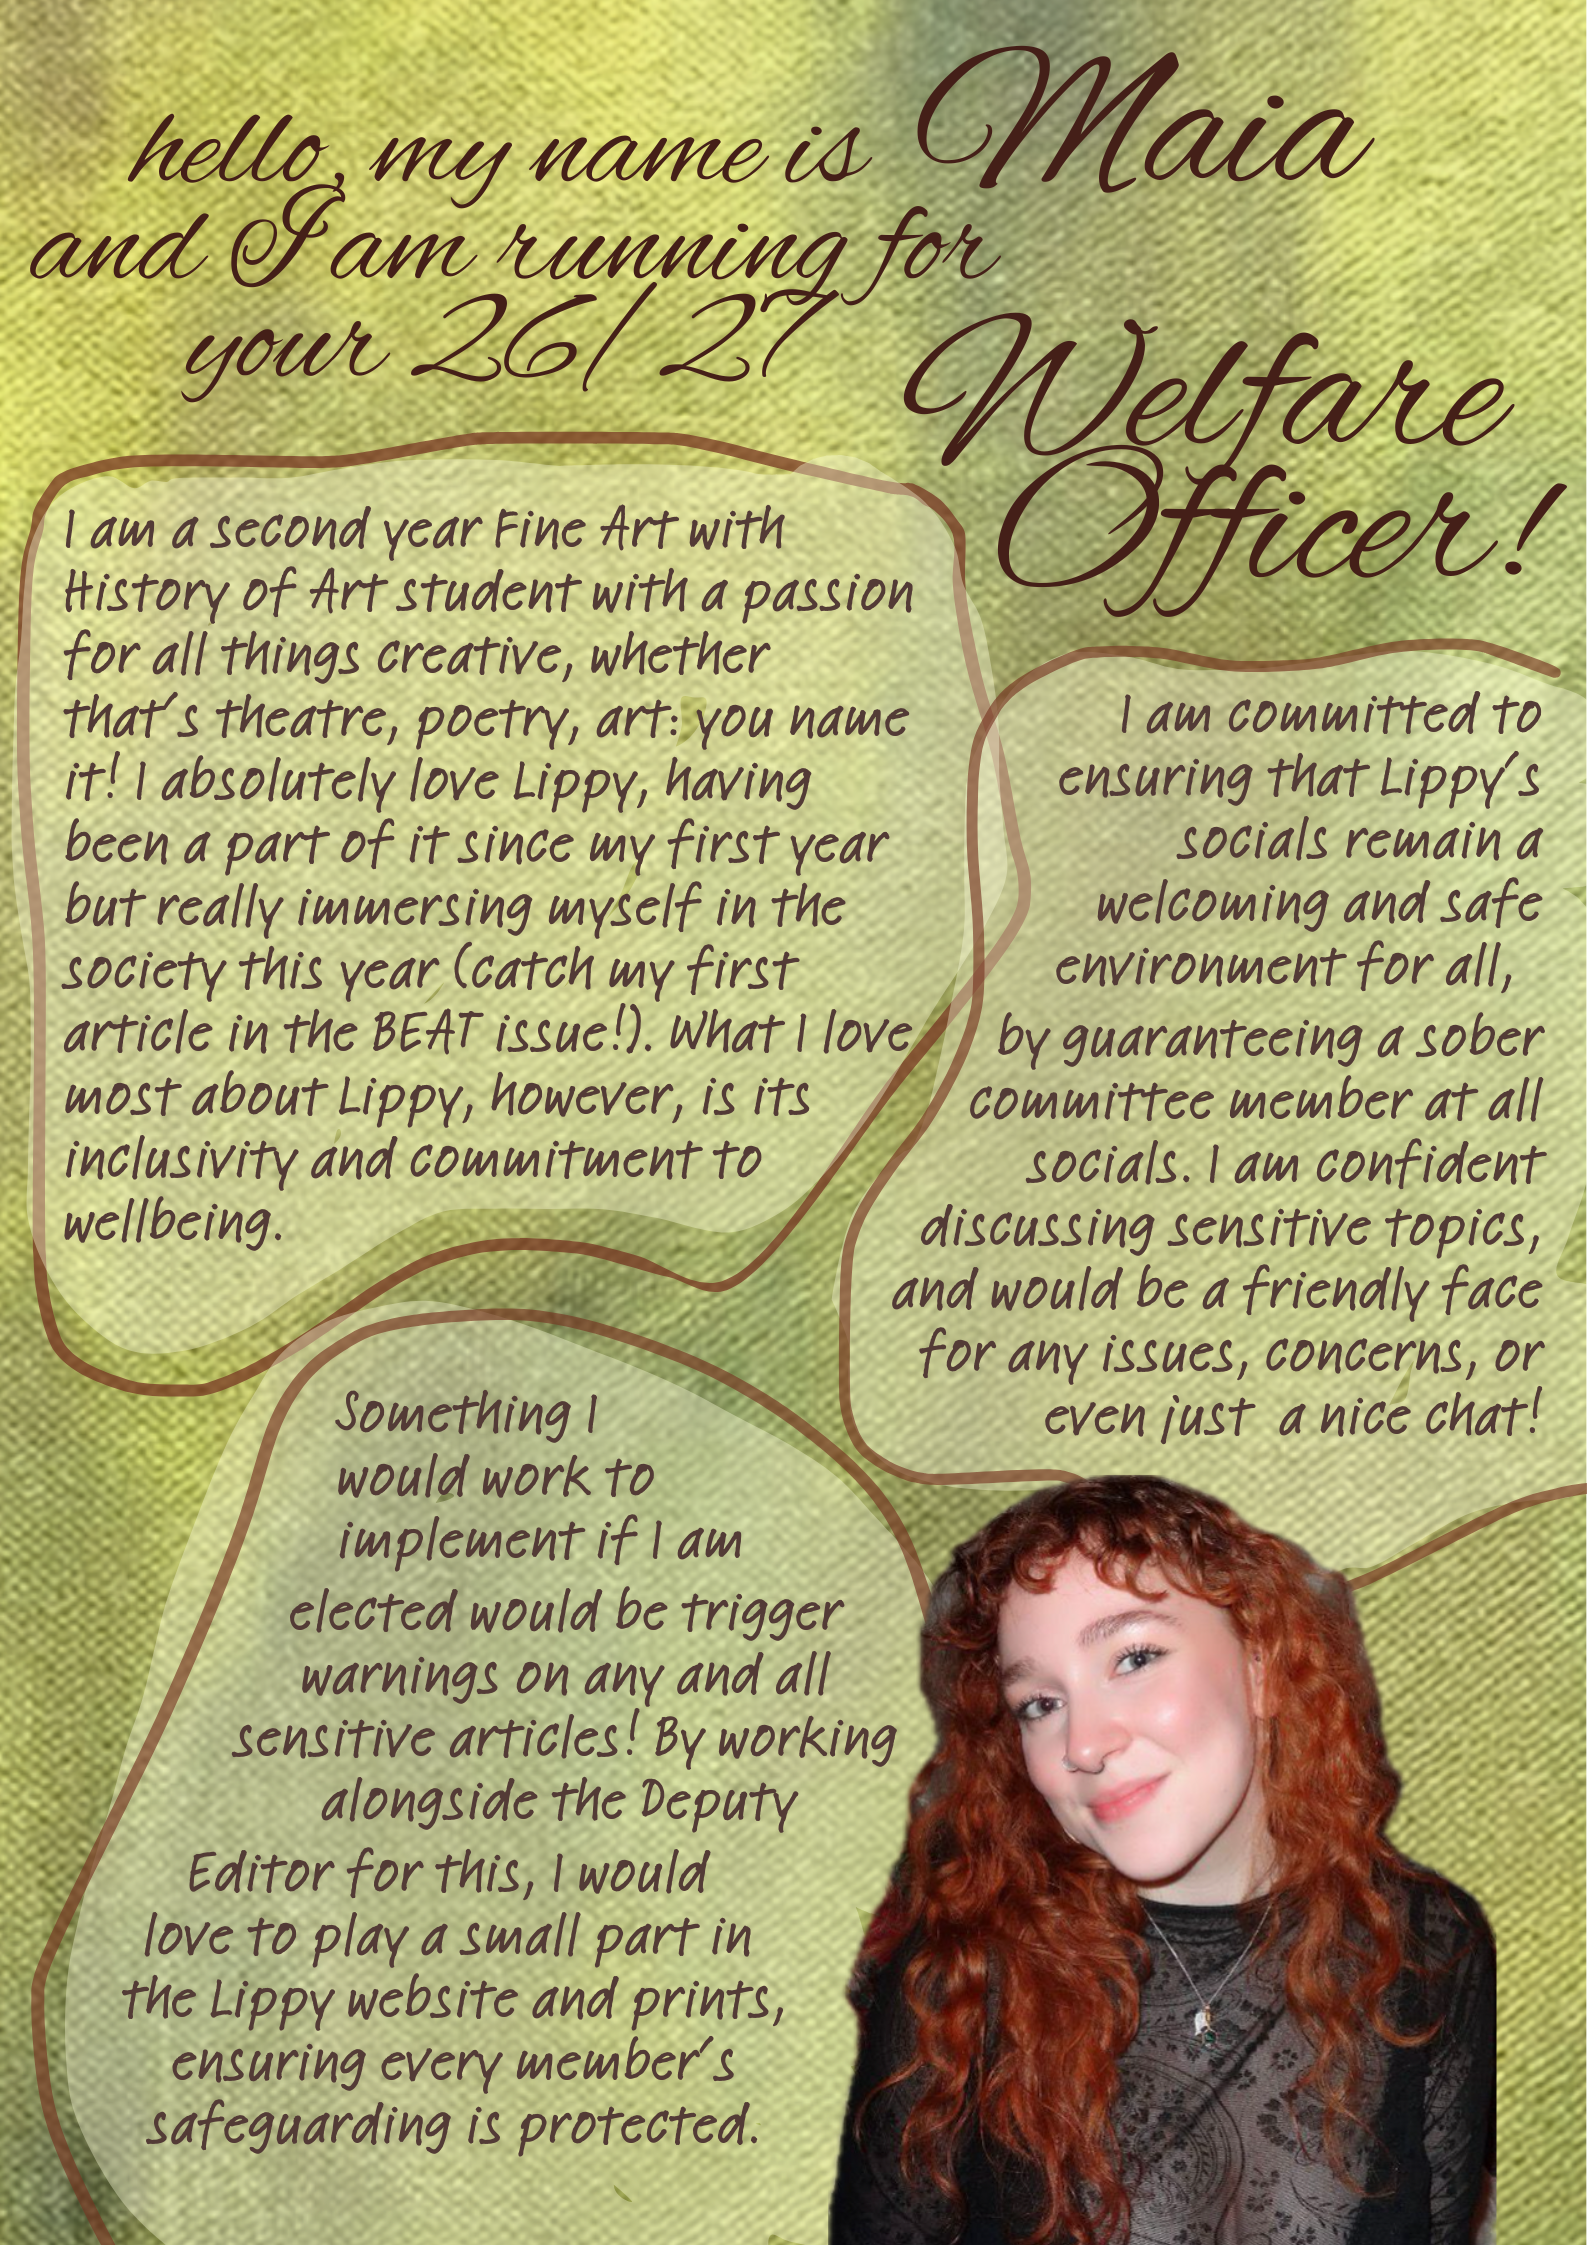 hello, my name is Maia
and I am running for
your 26/27
Welfare
Officer!
I am a second year Fine Art with
History of Art student with a passion
for all things creative, whether
that's theatre, poetry, art: you name
it! I absolutely love Lippy, having
been a part of it since my first year
but really immersing myself in the
society this year (catch my first
article in the BEAT issue!). What I love
most about Lippy, however, is its
inclusivity and commitment to
wellbeing.
I am committed to
ensuring that Lippy's
socials remain a
welcoming and safe
environment for all,
by guaranteeing a sober
committee member at all
socials. I am confident
discussing sensitive topics,
and would be a friendly face
for any issues, concerns, or
even just a nice chat!
Something I
would work to
implement if I am
elected would be trigger
warnings on any and all
sensitive articles! By working
alongside the Deputy
Editor for this, I would
love to play a small part in
the Lippy website and prints,
ensuring every member's
safeguarding is protected.